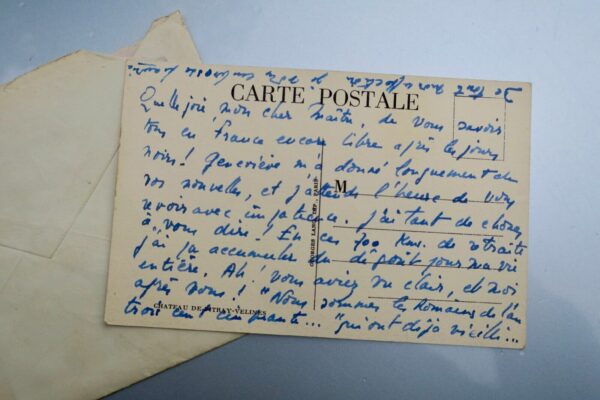 De tout
CARTE POSTALE
Quelle joie, mon cher Maître, de vous savoir
tous en France encore libre après les jours
noirs! Geneviève m'a donné longuement de
vos nouvelles, et j'attends l'heure de vous
M
revoir avec impatience. J'ai tant de choses
à vous dire! En ces 700 Kms. de retraite
j'ai pu accumuler du dégoût pour ma vie
entière. Ah! vous aviez vu clair, et moi
après vous! "Nous sommes les Romains de l'an
trois cent cinquante... "qui ont déjà vieilli...
GEORGES LANG, IMP., PARIS
CHATEAU DE -VELINES